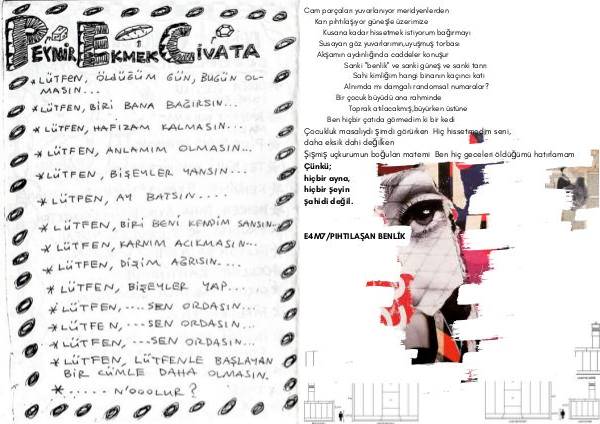 PEYNİR EKMEK CİVATA
* LÜTFEN, ÖLDÜĞÜM GÜN, BUGÜN OL-
MASIN...
* LÜTFEN, BİRİ BANA BAĞIRSIN...
* LÜTFEN, HAFIZAM KALMASIN...
* LÜTFEN, ANLAMIM OLMASIN...
* LÜTFEN, BİŞEYLER YANSIN...
* LÜTFEN, AY BATSIN....
* LÜTFEN, BİRİ BENİ KENDİM SANSIN...
* LÜTFEN, KARNIM ACIKMASIN...
* LÜTFEN, DİŞİM AĞRISIN....
* LÜTFEN, BİŞEYLER YAP....
* LÜTFEN, ....SEN ORDASIN...
* LÜTFEN, ...SEN ORDASIN...
* LÜTFEN, ...SEN ORDASIN...
* LÜTFEN, LÜTFENLE BAŞLAYAN
BİR CÜMLE DAHA OLMASIN.
*...... N'OOOLUR?
Cam parçaları yuvarlanıyor meridyenlerden
Kan pıhtılaşıyor güneşle üzerimize
Kusana kadar hissetmek istiyorum bağırmayı
Susayan göz yuvarlarımın,uyuşmuş torbası
Akşamın aydınlığında caddeler konuşur
Sanki "benlik" ve sanki güneş ve sanki tanrı
Sahi kimliğim hangi binanın kaçıncı katı
Alnımda mı damgalı randomsal numaralar?
Bir çocuk büyüdü ana rahminde
Toprak atılacakmış,büyürken üstüne
Ben hiçbir çatıda görmedim ki bir kedi
Çocukluk masalıydı Şimdi görürken Hiç hissetmedim seni,
daha eksik dahi değilken
Şişmiş uçkurumun boğulan matemi Ben hiç geceleri öldüğümü hatırlamam
Çünkü;
hiçbir ayna,
hiçbir şeyin
şahidi değil.
E4N7/PIHTILAŞAN BENLİK